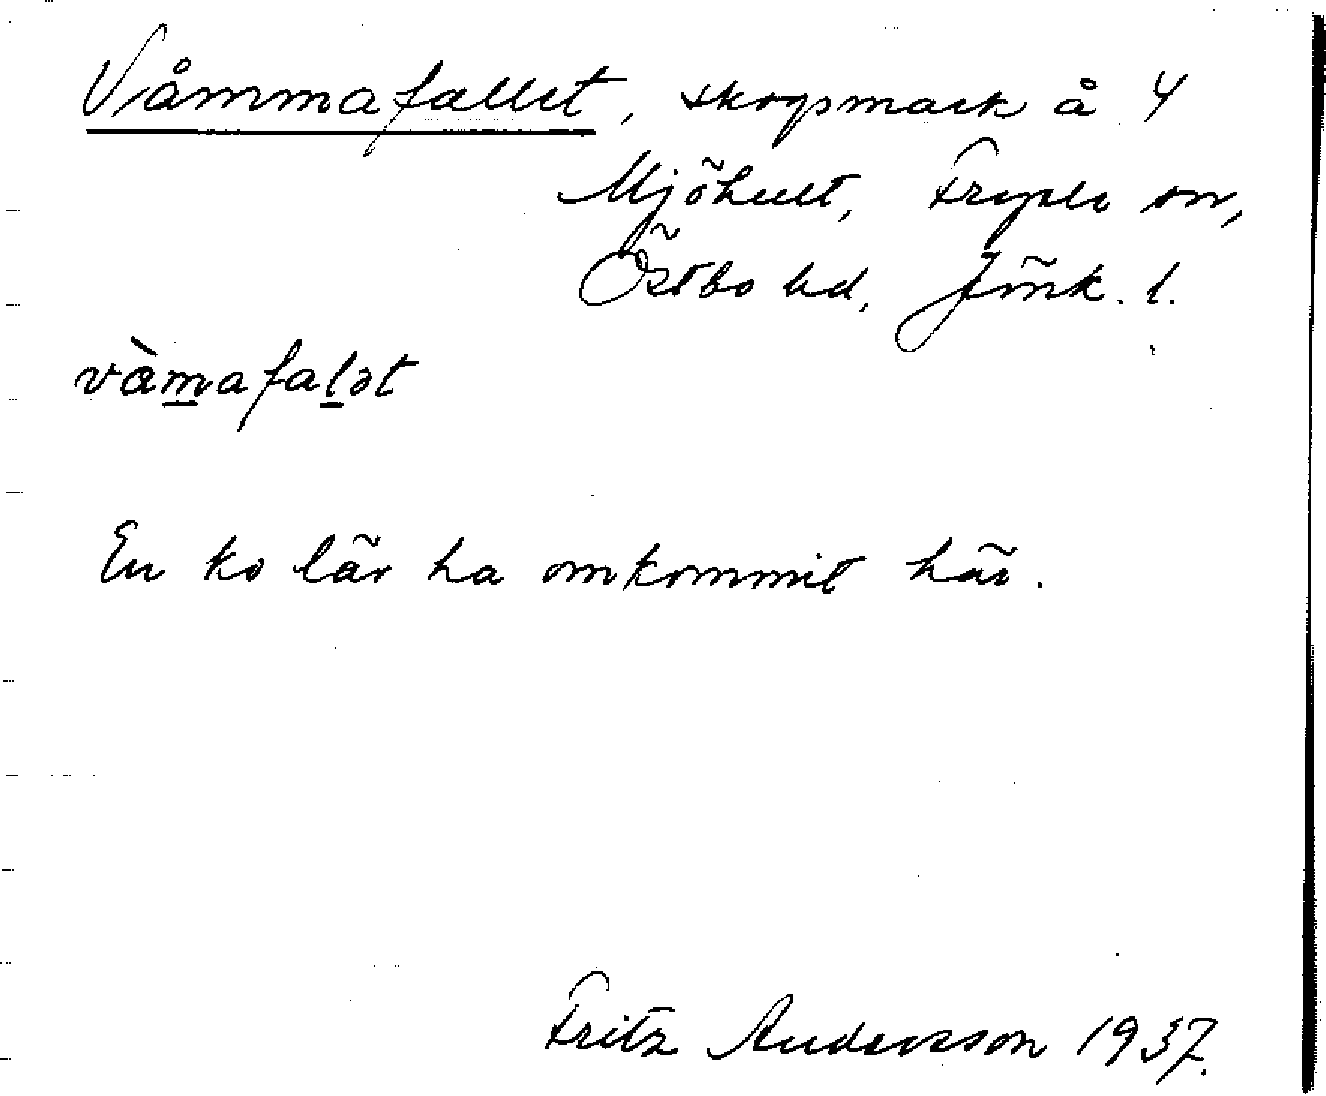 Våmmafallet, skogsmark å 4
Mjöhult, Fryele sn,
Östbo hd, Jönk. l.
vàm̲afal̲ət
En ko lär ha omkommit här.
Fritz Andersson 1937.